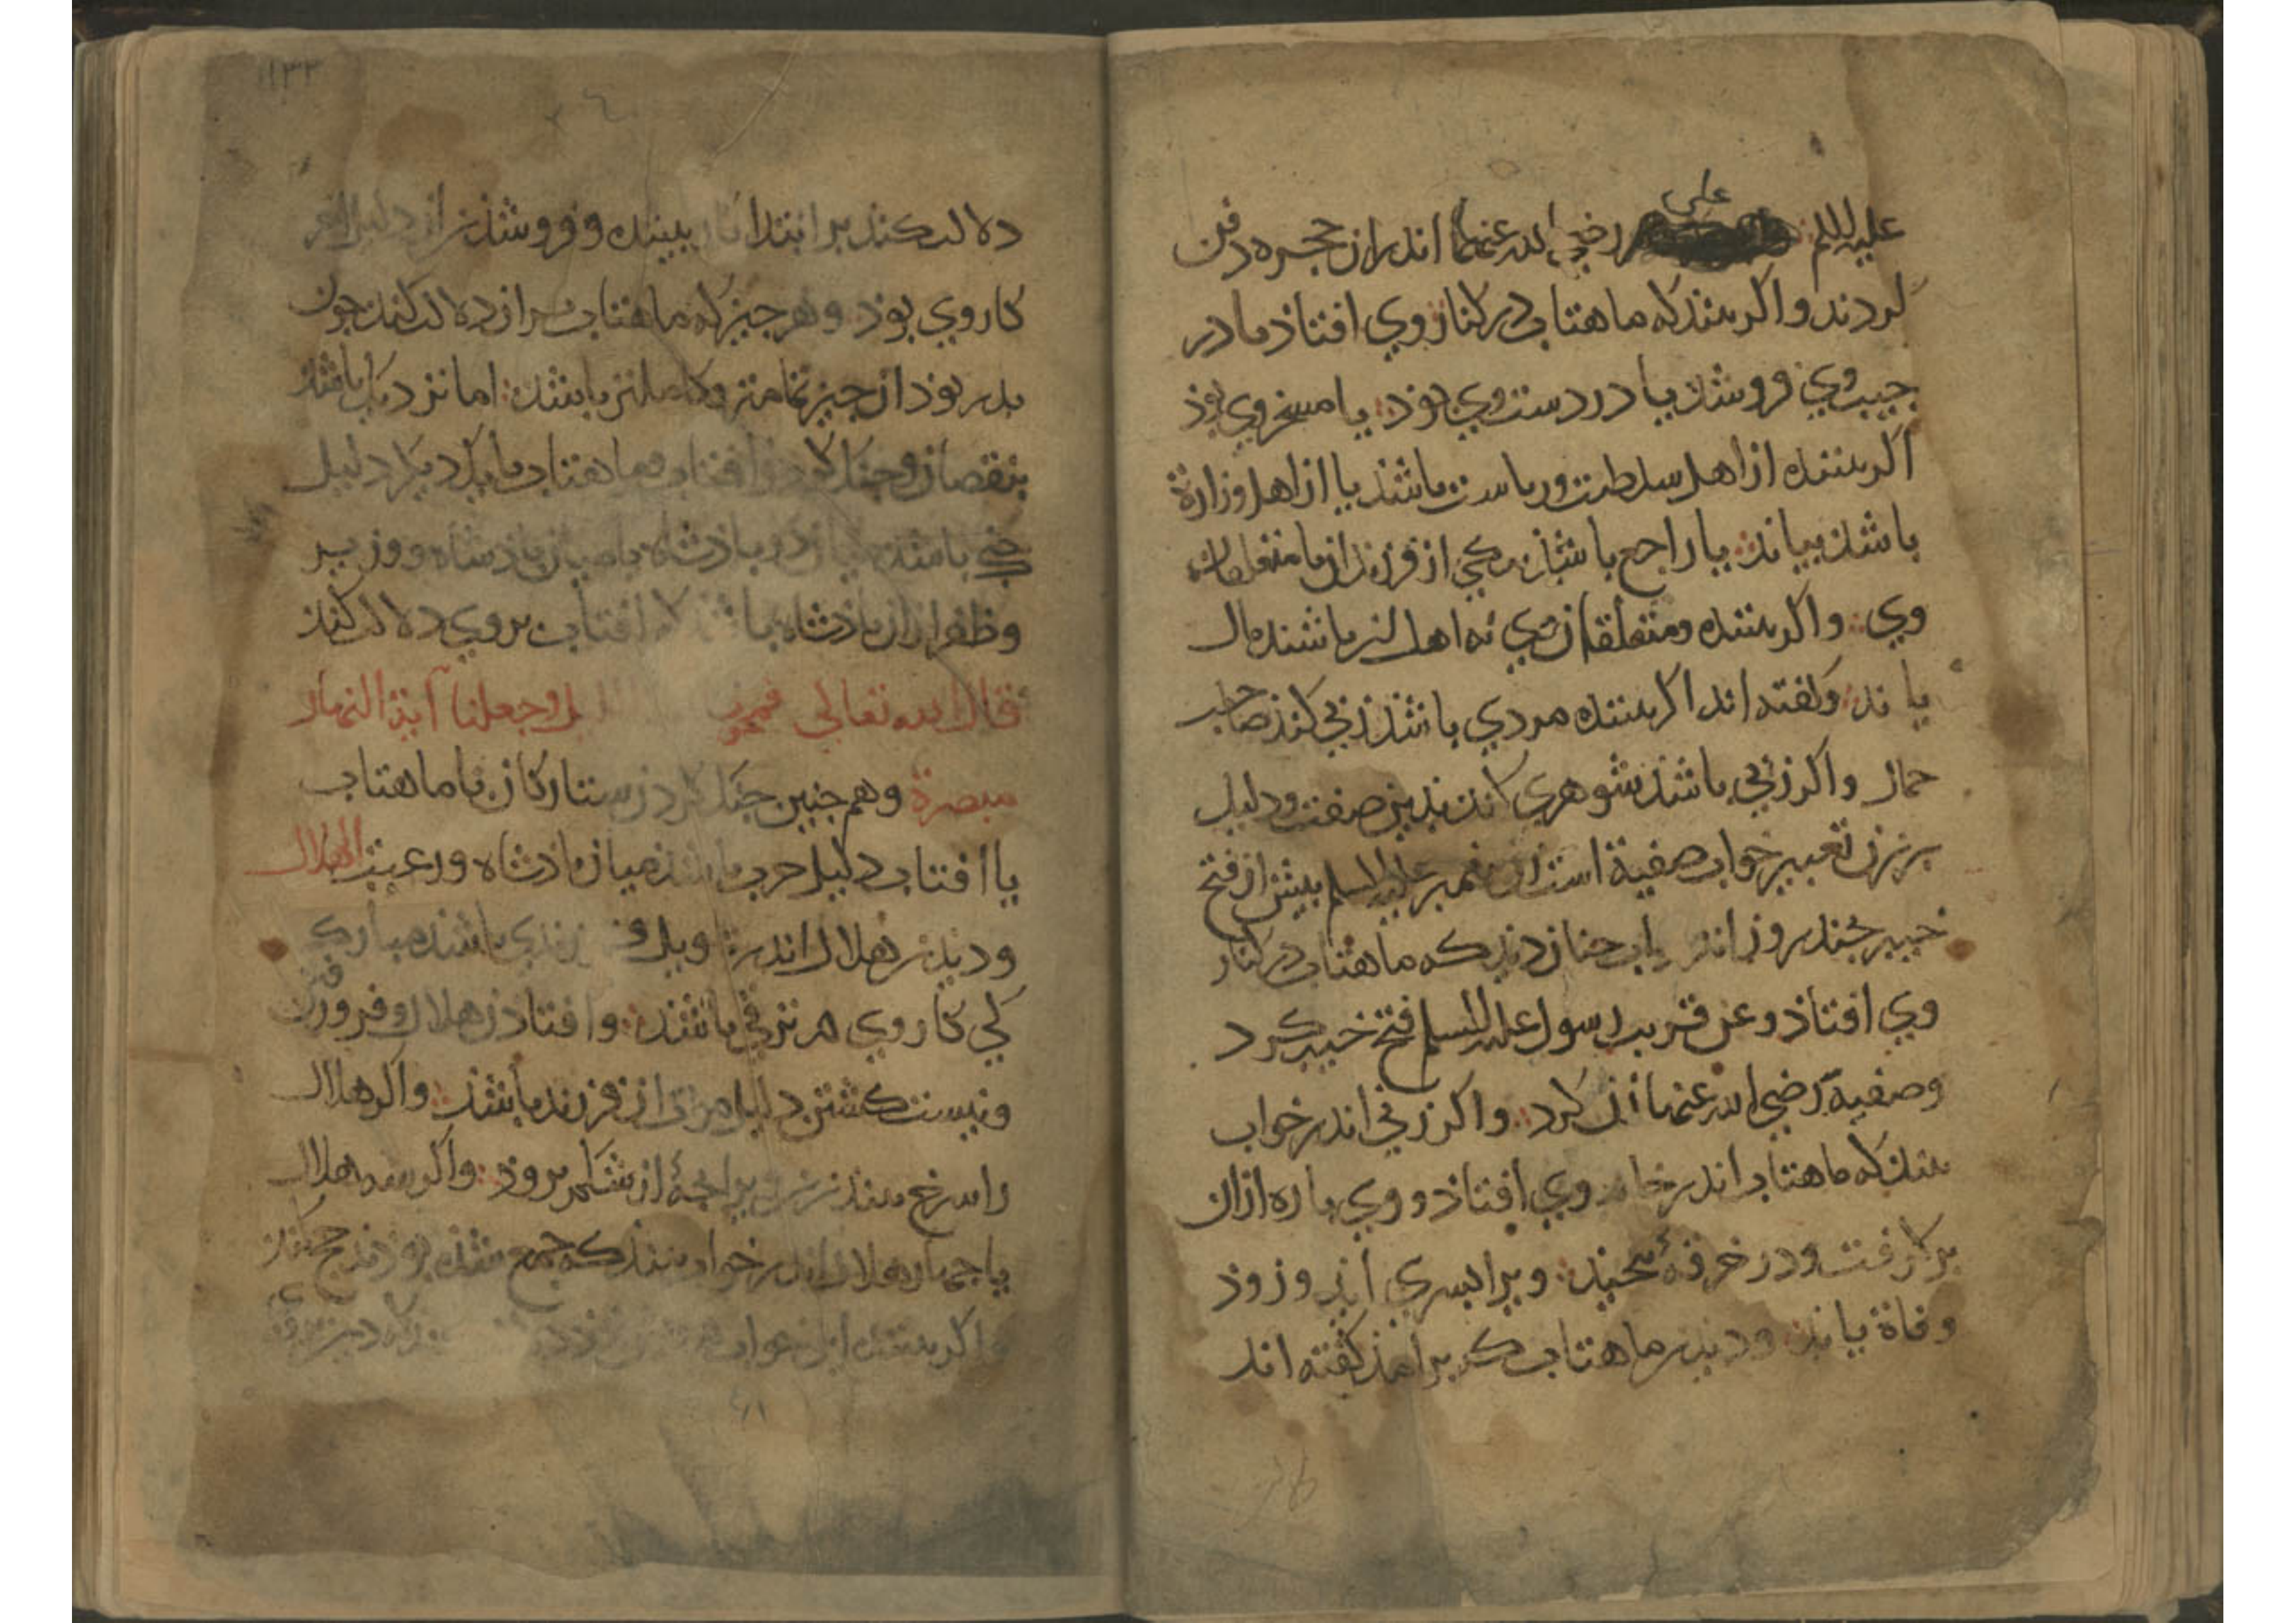 علی
علیه السلم رضی الله عنهما اندران حجره دفن
کردند واکر بیند که ماهتاب در کنار وی افتاذ مادر
جیب وی فروشذ یا در دست وی بوذ یا مسخر وی بوذ
اکر بیننده از اهل سلطنت وریاست باشذ یا از اهل وزارة
باشذ بیابذ یا راجع باشذ بیکی از فرزندان یا متعلقان
وی واکر بیننده ومتعلقان وی نه اهل این باشند مال
یابذ وکفته اند اکر بیننده مردی باشذ زنی کنذ صاحب
جمال واکر زنی باشذ شوهری کند بذین صفت ودلیل
برین تعبیر خواب صفیة است زن پیغمبر علیه السلم بیش از فتح
خیبر جند روز اندر خواب جنان دید که ماهتاب در کنار
وی افتاذ وعن قریب رسول علیه السلم فتح خیبر کرد
وصفیه رضی الله عنها آن کرد واکر زنی اندر خواب
بیند که ماهتاب اندر خانه وی افتاذ ووی باره ازان
برکرفت ودر خرقهٔ وبرا بسری آید وزوذ
وفاة یابذ ودیدن ماهتاب کر برامذ کفته اند
١١٣٢
دلالت کند بر ابتدا کار بیننده وفروشذن از دلیل اخر
کار وی بوذ وهر جیز که ماهتاب بران دلالت کند جون
بدر بوذ ان جیز تمامتر وکاملتر باشذ اما نزدیک باشذ
بنقصان وجنک کردن افتاب وماهتاب با یکدیکر دلیل
جنک باشذ میان دو باذشاه یا میان باذشاه ووزیر
وظفر ازان باذشاه باشذ که افتاب بروی دلالت کند
قال الله تعالی فمحونا وجعلنا آیة النهار
مبصرة وهم جنین جنک کردن ستارکان با ماهتاب
یا افتاب دلیل حرب باشذ میان باذشاه ورعیت الهلال
ودیدن هلال اندر فرزندی باشذ مبارک
کی کار وی در ترقی باشذ وافتاذن هلال وفرورفتن
ونیست کشتن دلیل مردن ان فرزند باشذ واکر هلال
را سرخ بیند زن ویرا بجهٔ از شکم بروذ واکر سه هلال
یا جهار هلال اندر خواب بیند که جمع شذه بوذند حج کند
واکر بیننده این خواب